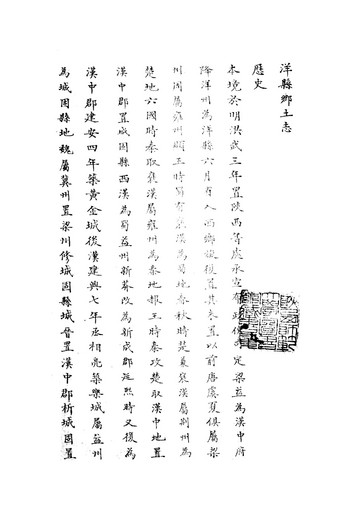 洋縣鄉土志
歷史
本境於明洪武三年置陝西等處承宣 政 定梁益為漢中府
降洋州為洋縣六月省入西鄉旋復置其未置以前唐虞夏俱屬梁
州周屬雍州 王時蜀有褒漢為蜀地春秋時楚 褒漢屬荊州為
楚地六國時秦取褒漢屬雍州為秦地赧王時秦攻楚取漢中地置
漢中郡置成固縣西漢為蜀益州新莽改為新成郡延熙時又復為
漢中郡建安四年築黃金城後漢建興七年丞相亮築樂城屬益州
為城固縣地魏屬冀州置梁州修城固縣城晉置漢中郡析城固置